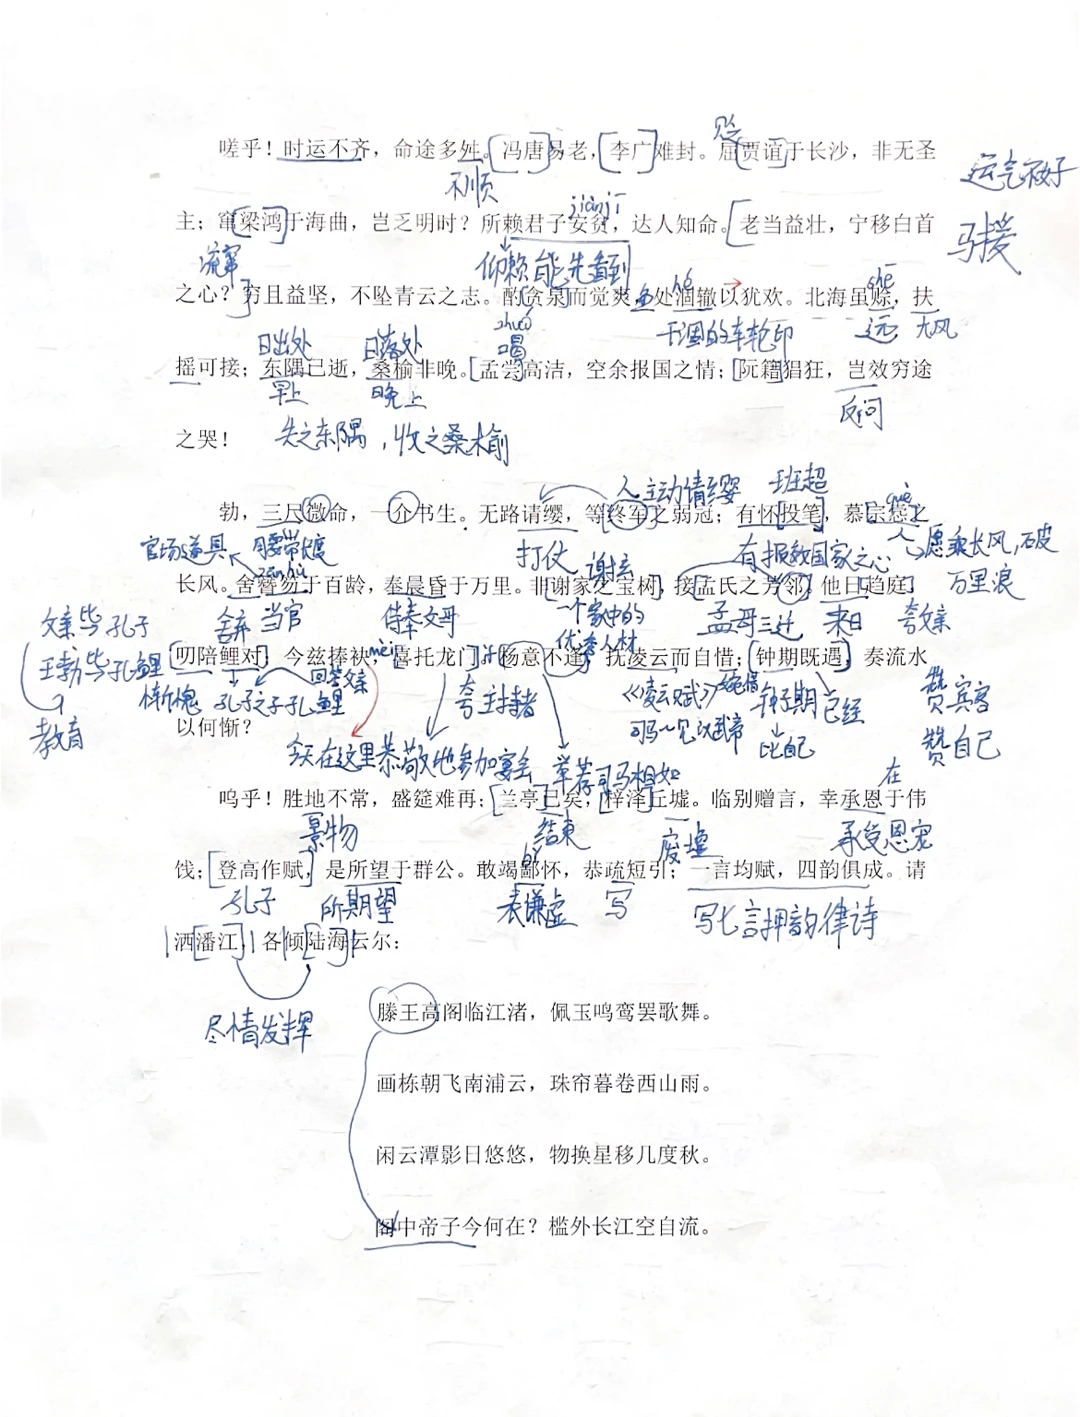 贬
嗟乎！时运不齐，命途多舛。冯唐易老，李广难封。屈贾谊于长沙，非无圣
不顺
运气不好
jiànjī
主；窜梁鸿于海曲，岂乏明时？所赖君子安贫，达人知命。老当益壮，宁移白首
马援
流窜
仰赖 能先看到
hé
shē
之心？穷且益坚，不坠青云之志。酌贪泉而觉爽，处涸辙以犹欢。北海虽赊，扶
鱼
zhuó
日出处 日落处 喝 干涸的车轮印 远 大风
摇可接；东隅已逝，桑榆非晚。孟尝高洁，空余报国之情；阮籍猖狂，岂效穷途
早上 晚上
反问
之哭！ 失之东隅，收之桑榆
人 主动请缨 班超
què
勃，三尺微命，一介书生。无路请缨，等终军之弱冠；有怀投笔，慕宗悫之
官场道具 用腰带长度
打仗 谢玄 有报效国家之心 人 愿乘长风，破
万里浪
zān hù
长风。舍簪笏于百龄，奉晨昏于万里。非谢家之宝树，接孟氏之芳邻。他日趋庭，
舍弃 当官 侍奉父母 一个家中的
优秀人材
孟母三迁 来日 夸父亲
父亲 毕 孔子
王勃 毕 孔鲤
教育
mèi
叨陪鲤对；今兹捧袂，喜托龙门。杨意不逢，抚凌云而自惜；钟期既遇，奏流水
惭愧 孔子之子孔鲤 回答父亲
夸主持者
《凌云赋》 惋惜
司马 见汉武帝
钟子期 已经
比自己
赞宾客
赞自己
以何惭？
今天在这里恭敬地参加宴会 举荐司马相如
在
呜乎！胜地不常，盛筵难再；兰亭已矣，梓泽丘墟。临别赠言，幸承恩于伟
景物 结束 废墟 承受恩宠
bǐ
饯；登高作赋，是所望于群公。敢竭鄙怀，恭疏短引；一言均赋，四韵俱成。请
孔子 所期望 表谦虚 写 写七言押韵律诗
洒潘江，各倾陆海云尔：
尽情发挥
滕王高阁临江渚，佩玉鸣鸾罢歌舞。
画栋朝飞南浦云，珠帘暮卷西山雨。
闲云潭影日悠悠，物换星移几度秋。
阁中帝子今何在？槛外长江空自流。